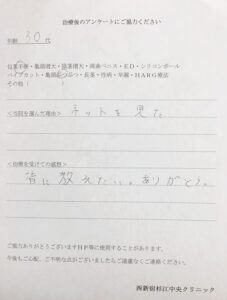 治療後のアンケートにご協力ください
年齢 30代
包茎手術・亀頭増大・陰茎増大・湾曲ペニス・ED・シリコンボール
パイプカット・亀頭ぶつぶつ・長茎・性病・早漏・HARG療法
その他（　　　）
<当院を選んだ理由> ネットを見た
<治療を受けての感想>
皆に教えたい。ありがとう。
ご協力ありがとうございますHP等に使用することがあります。
今後もご心配、ご不明な点がございましたらご遠慮なくご連絡ください。
西新宿杉江中央クリニック